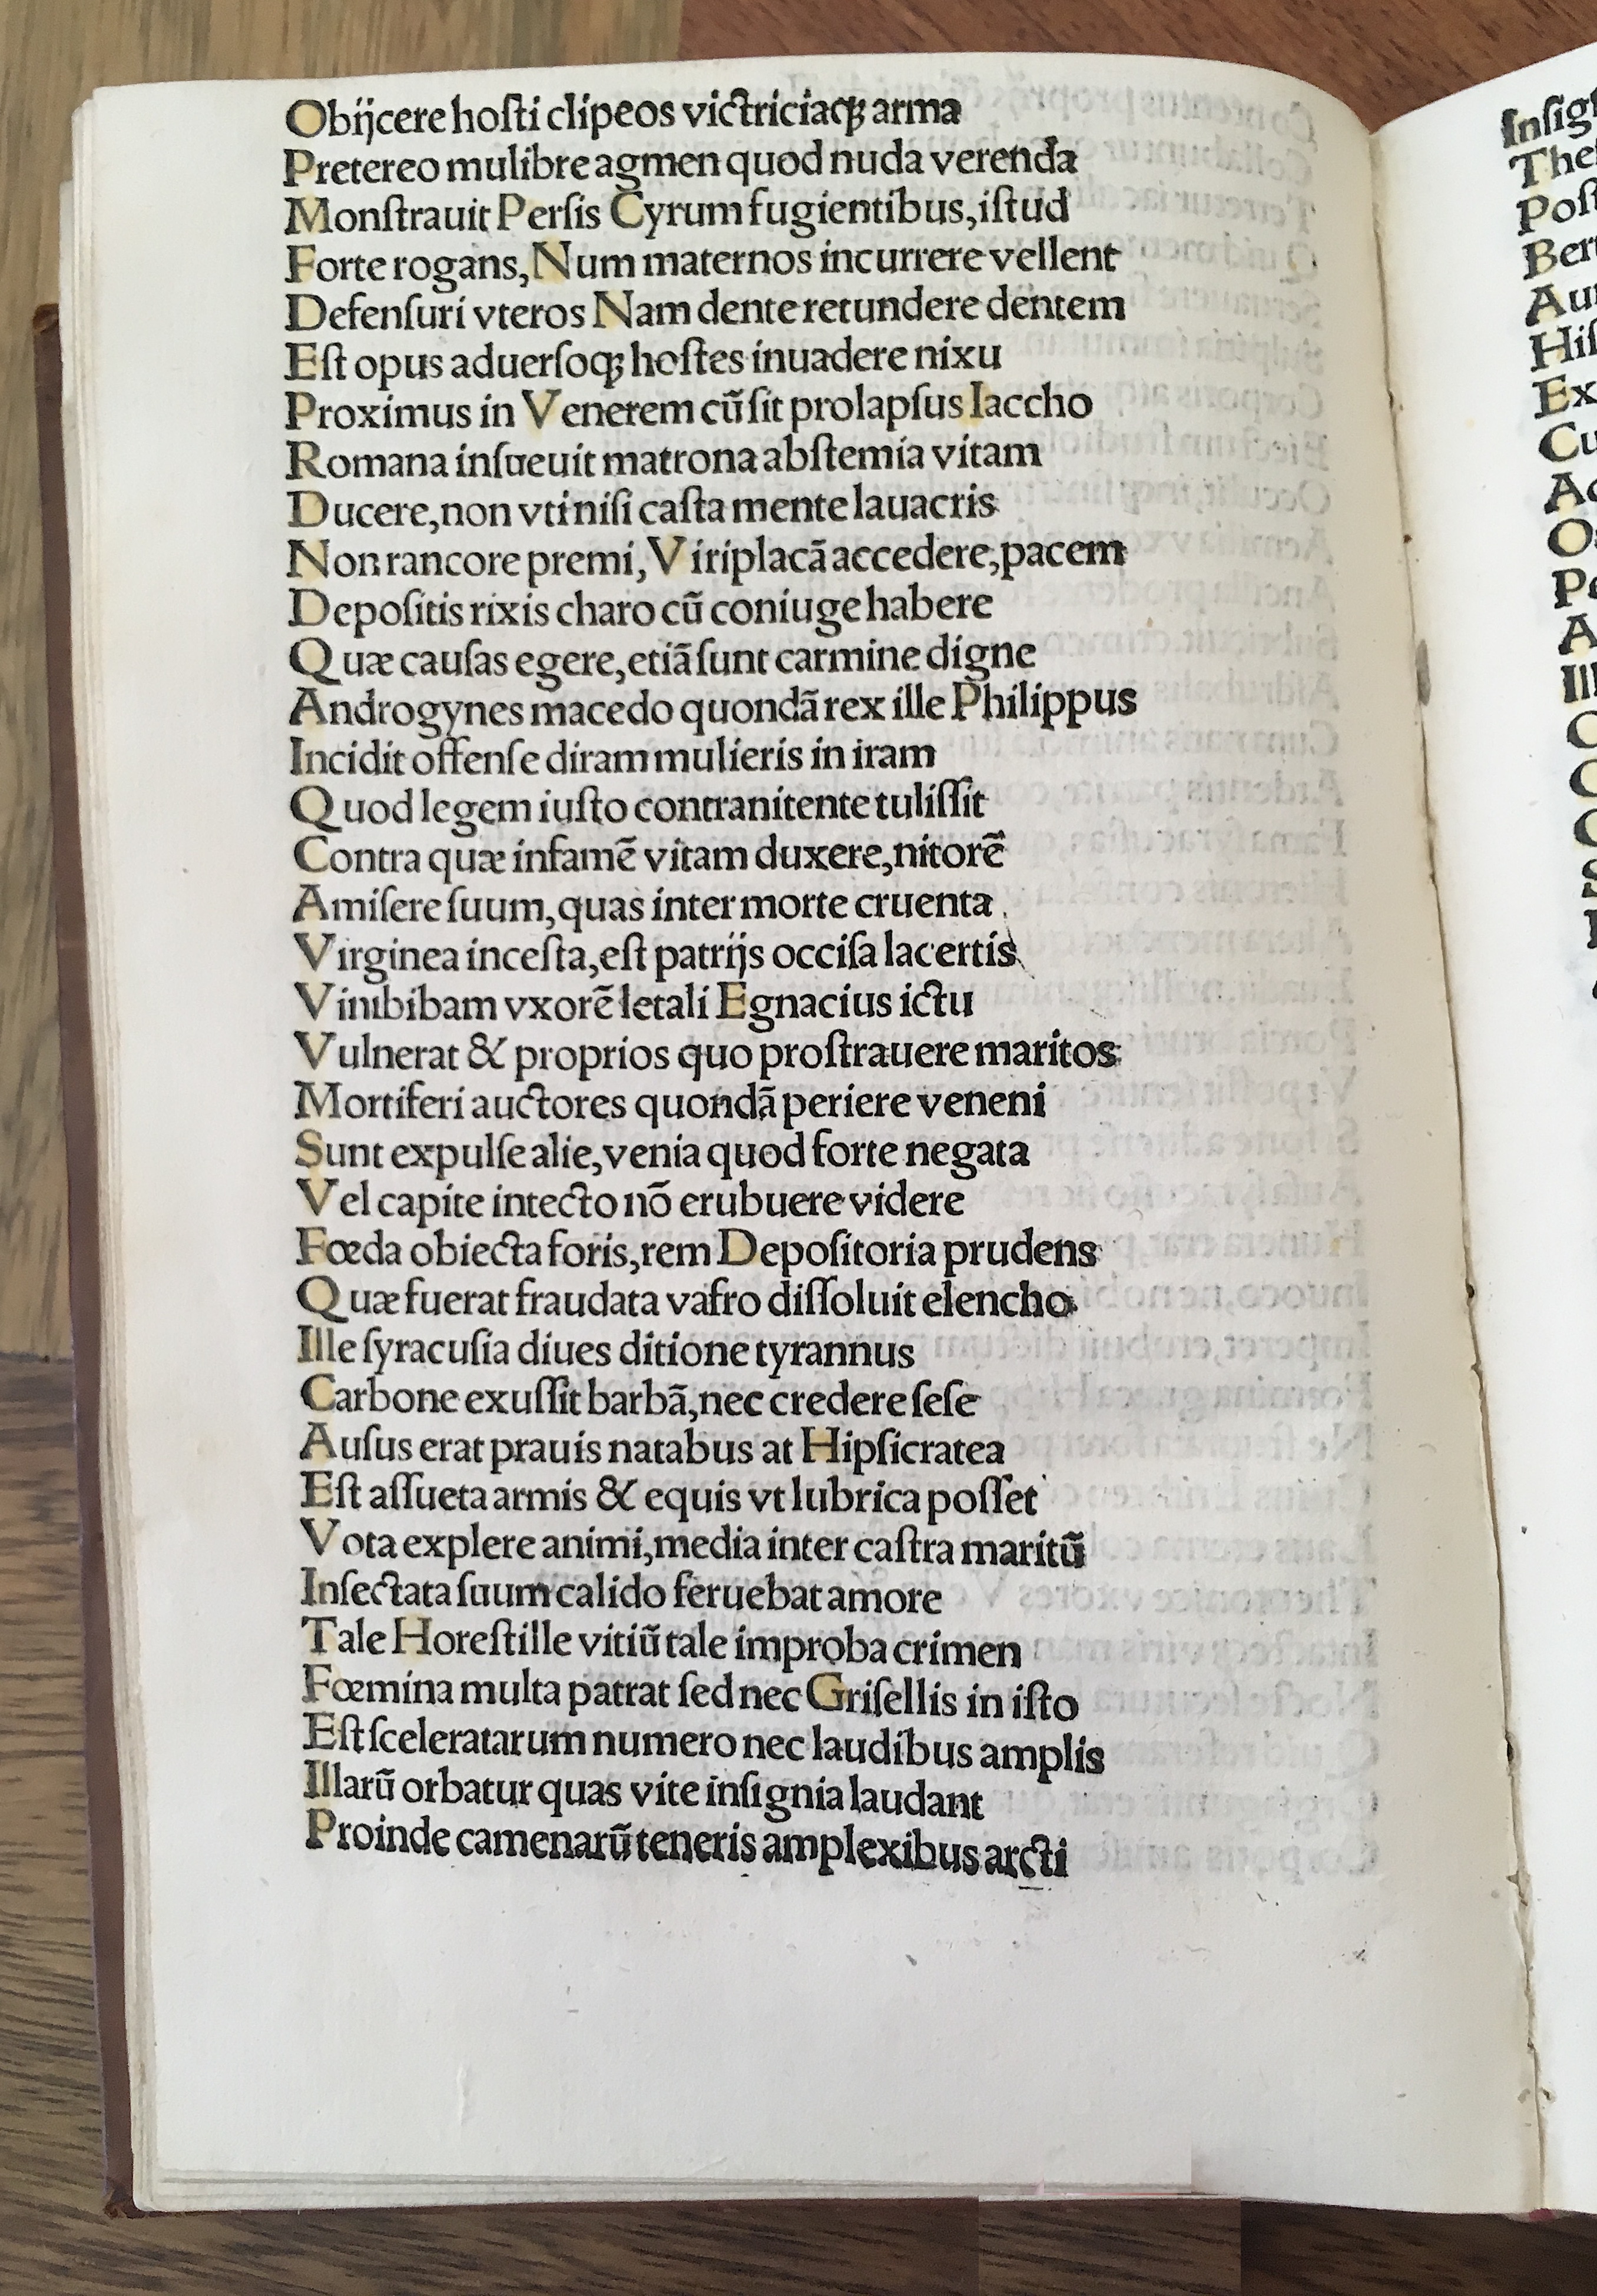 Obijcere hoſti clipeos victriciaqꝫ arma
Pretereo mulibre agmen quod nuda verenda
Monſtrauit Perſis Cyrum fugientibus, iſtud
Forte rogans, Num maternos incurrere vellent
Defenſuri vteros Nam dente retundere dentem
Eſt opus aduerſoqꝫ hoſtes inuadere nixu
Proximus in Venerem cũ ſit prolapſus Iaccho
Romana inſueuit matrona abſtemia vitam
Ducere, non vti niſi caſta mente lauacris
Non rancore premi, Viriplacã accedere, pacem
Depoſitis rixis charo cũ coniuge habere
Quæ cauſas egere, etiã ſunt carmine digne
Androgynes macedo quondã rex ille Philippus
Incidit offenſe diram mulieris in iram
Quod legem iuſto contranitente tuliſſit
Contra quæ infamẽ vitam duxere, nitorẽ
Amiſere ſuum, quas inter morte cruenta
Virginea inceſta, eſt patrijs occiſa lacertis
Vinibibam vxorẽ letali Egnacius ictu
Vulnerat & proprios quo proſtrauere maritos
Mortiferi auctores quondã periere veneni
Sunt expulſe alie, venia quod forte negata
Vel capite intecto nõ erubuere videre
Fœda obiecta foris, rem Depoſitoria prudens
Quæ fuerat fraudata vafro diſſoluit elencho
Ille ſyracuſia diues ditione tyrannus
Carbone exuſſit barbã, nec credere ſeſe
Auſus erat prauis natabus at Hipſicratea
Eſt aſſueta armis & equis vt lubrica poſſet
Vota explere animi, media inter caſtra maritũ
Inſectata ſuum calido feruebat amore
Tale Horeſtille vitiũ tale improba crimen
Fœmina multa patrat ſed nec Griſellis in iſto
Eſt ſceleratarum numero nec laudibus amplis
Illarũ orbatur quas vite inſignia laudant
Proinde camenarũ teneris amplexibus arcti